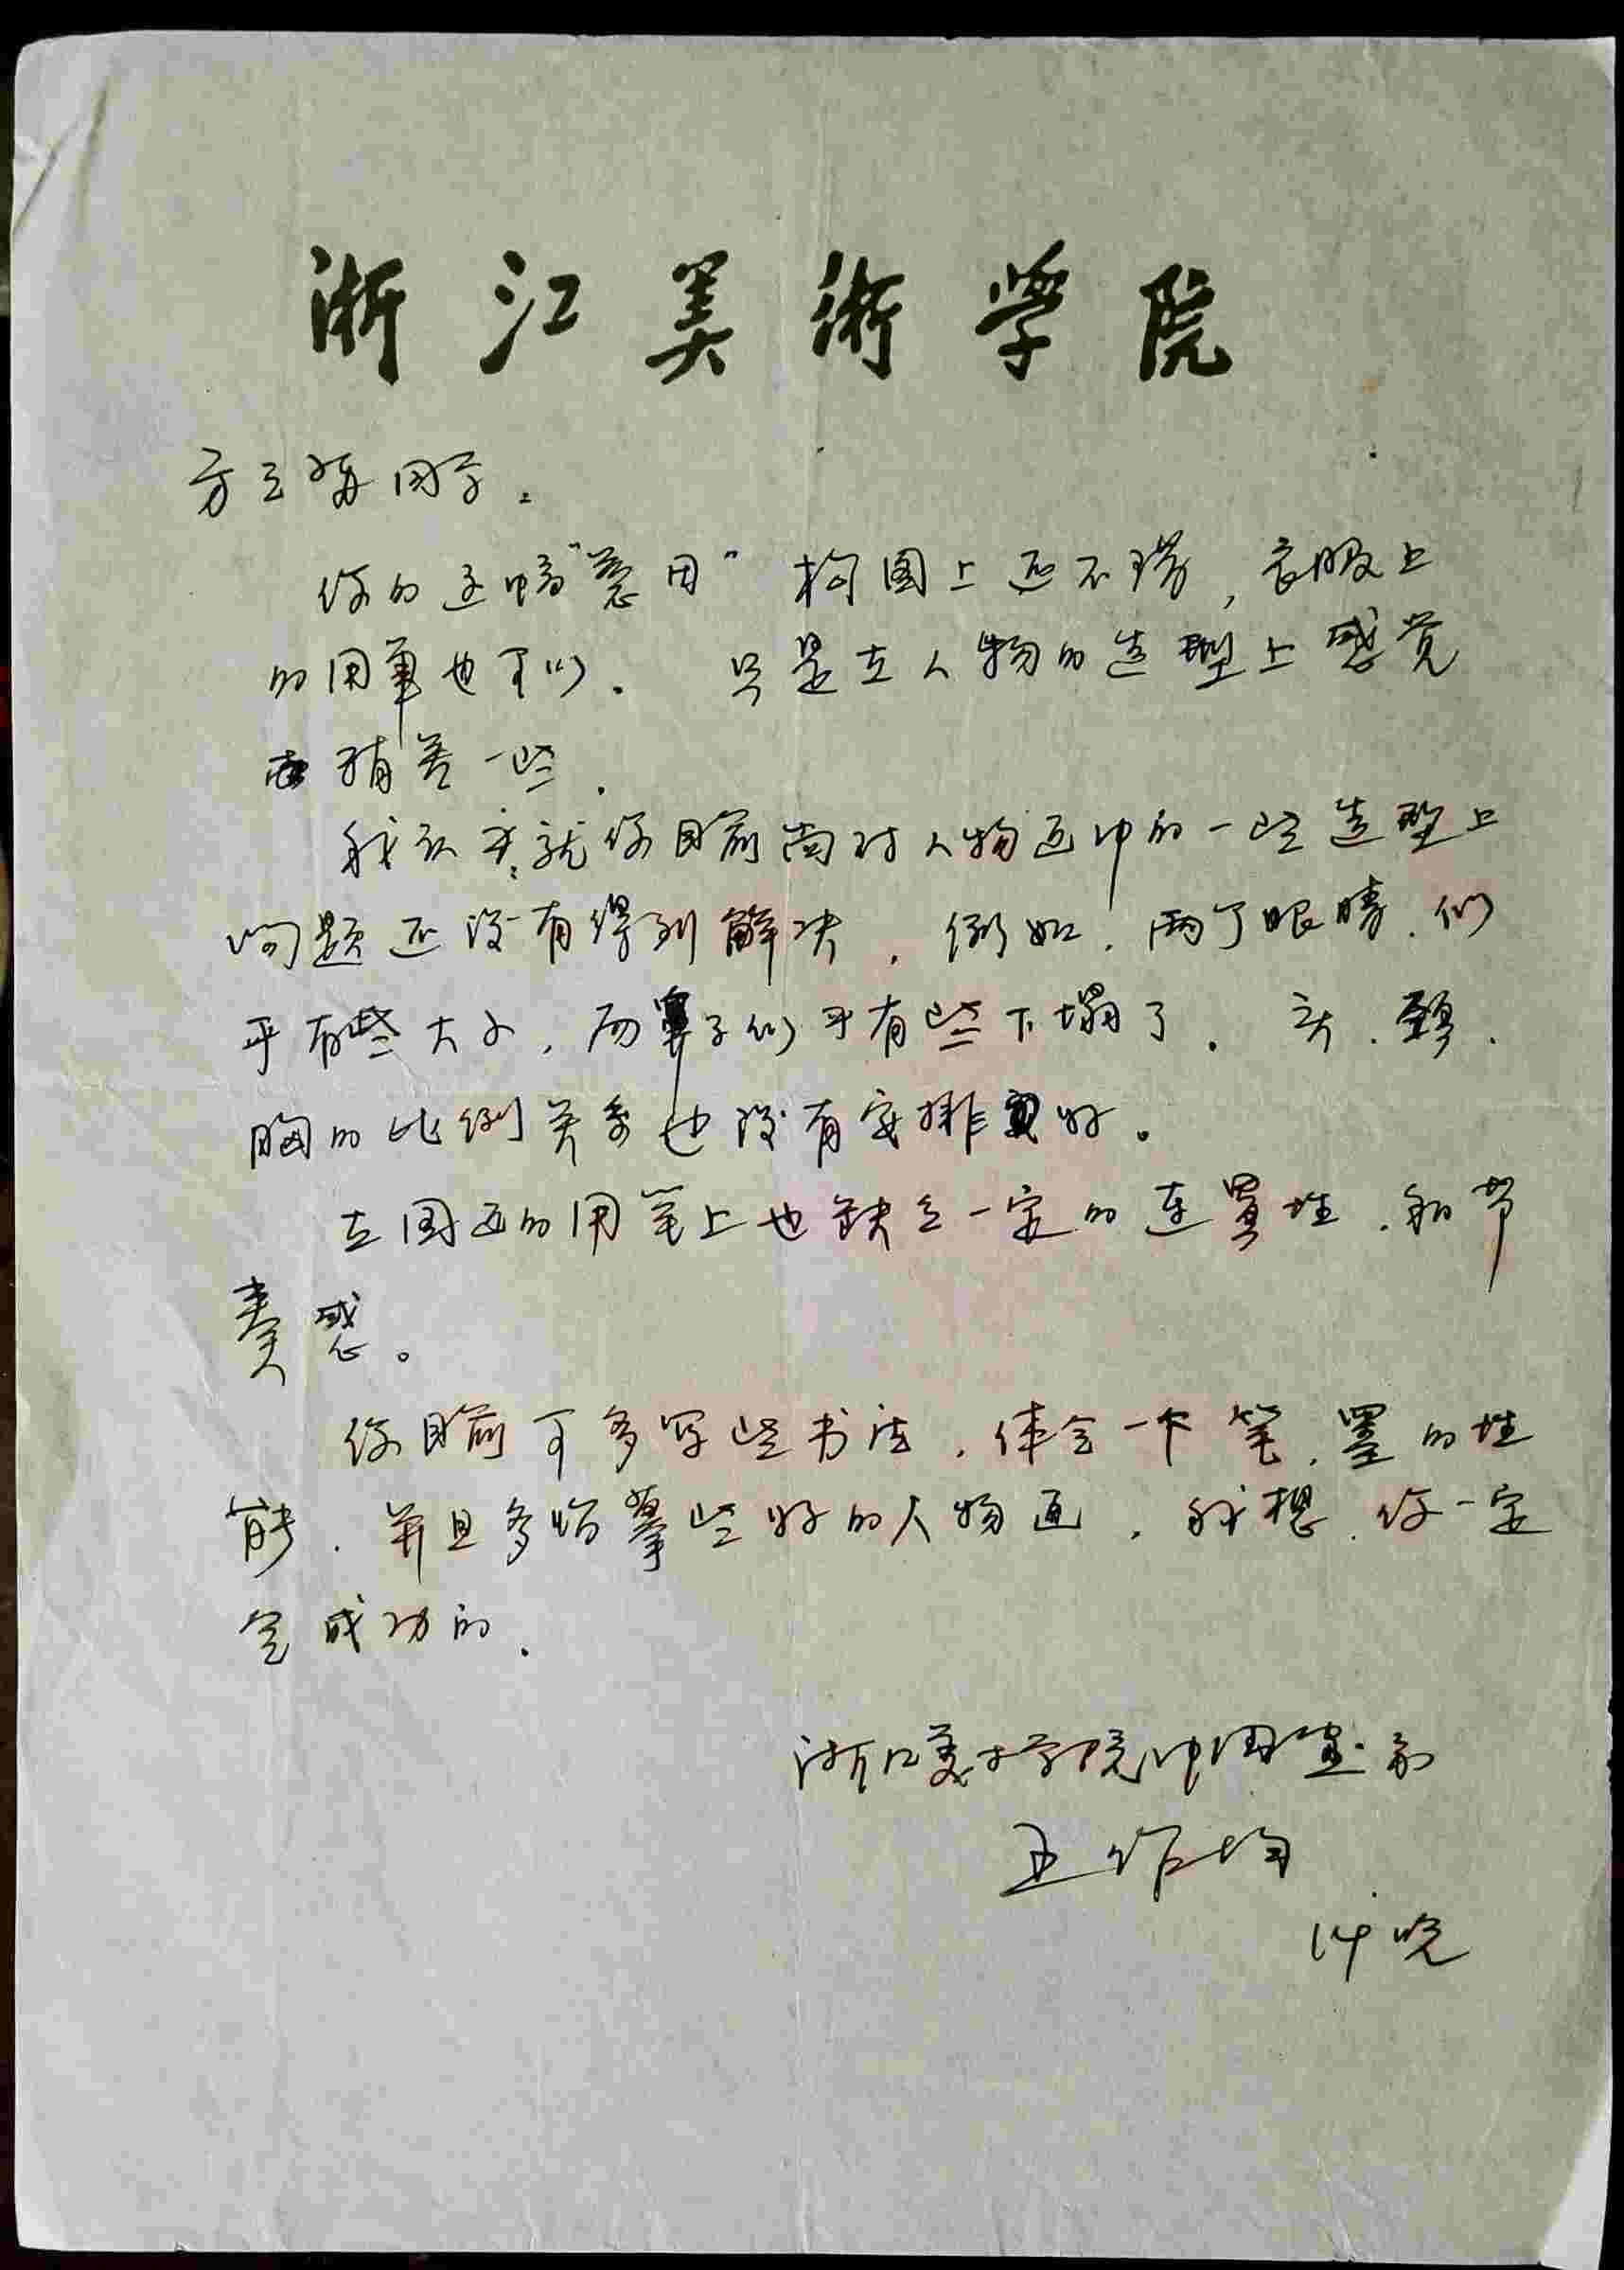 浙江美術学院
方云 同学：
你的这幅“ 用”构图上还不错，衣服上
的用笔也可以。 只是在人物的造型上感觉
稍差一些．
我认为就你目前尚对人物画中的一些造型上
问题还没有得到解决．例如．两个眼睛．似
乎有些大小．而鼻子似乎有些下塌了．头．颈．
胸的比例关系也没有安排好。
在国画的用笔上也缺乏一定的连贯性．和节
奏感。
你目前可多写些书法．体会一下笔．墨的性
能．并且多临摹些好的人物画．我想．你一定
会成功的．
浙江美术学院中国画系
王作均
14晚